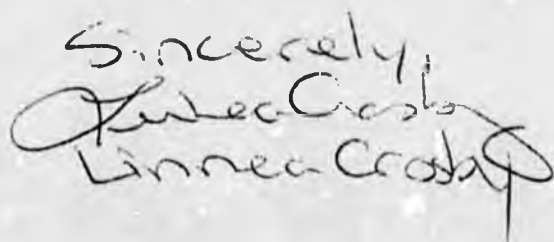 Sincerely,
Linnea Crosby
Linnea Crosby